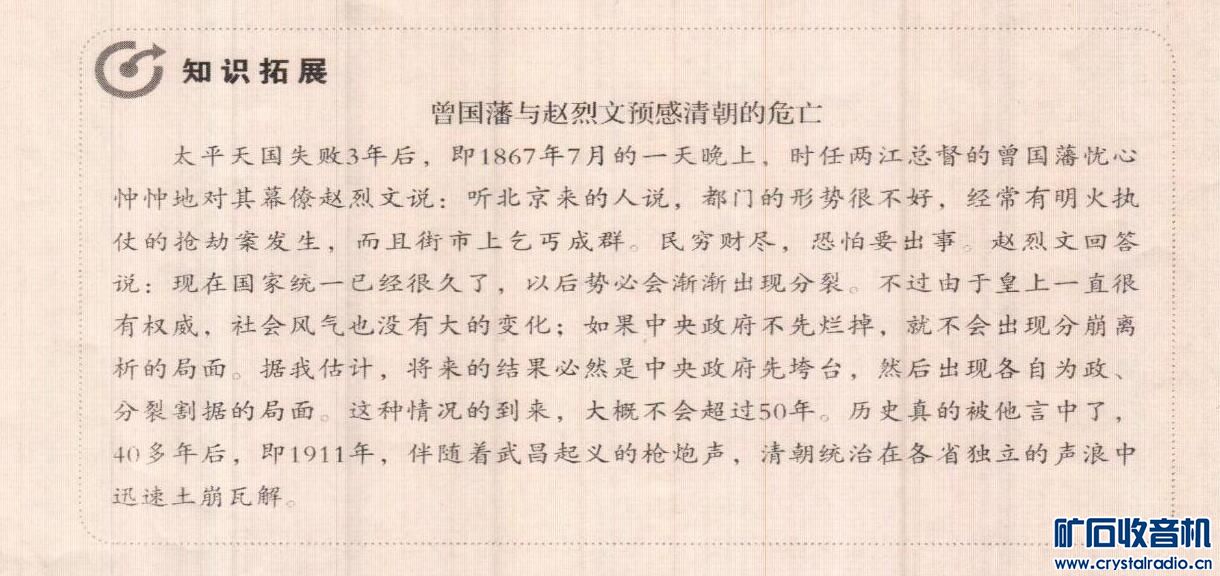 知识拓展
曾国藩与赵烈文预感清朝的危亡
太平天国失败3年后，即1867年7月的一天晚上，时任两江总督的曾国藩忧心
忡忡地对其幕僚赵烈文说：听北京来的人说，都门的形势很不好，经常有明火执
仗的抢劫案发生，而且街市上乞丐成群。民穷财尽，恐怕要出事。赵烈文回答
说：现在国家统一已经很久了，以后势必会渐渐出现分裂。不过由于皇上一直很
有权威，社会风气也没有大的变化；如果中央政府不先烂掉，就不会出现分崩离
析的局面。据我估计，将来的结果必然是中央政府先垮台，然后出现各自为政、
分裂割据的局面。这种情况的到来，大概不会超过50年。历史真的被他言中了，
40多年后，即1911年，伴随着武昌起义的枪炮声，清朝统治在各省独立的声浪中
迅速土崩瓦解。
矿石收音机
www.crystalradio.cn